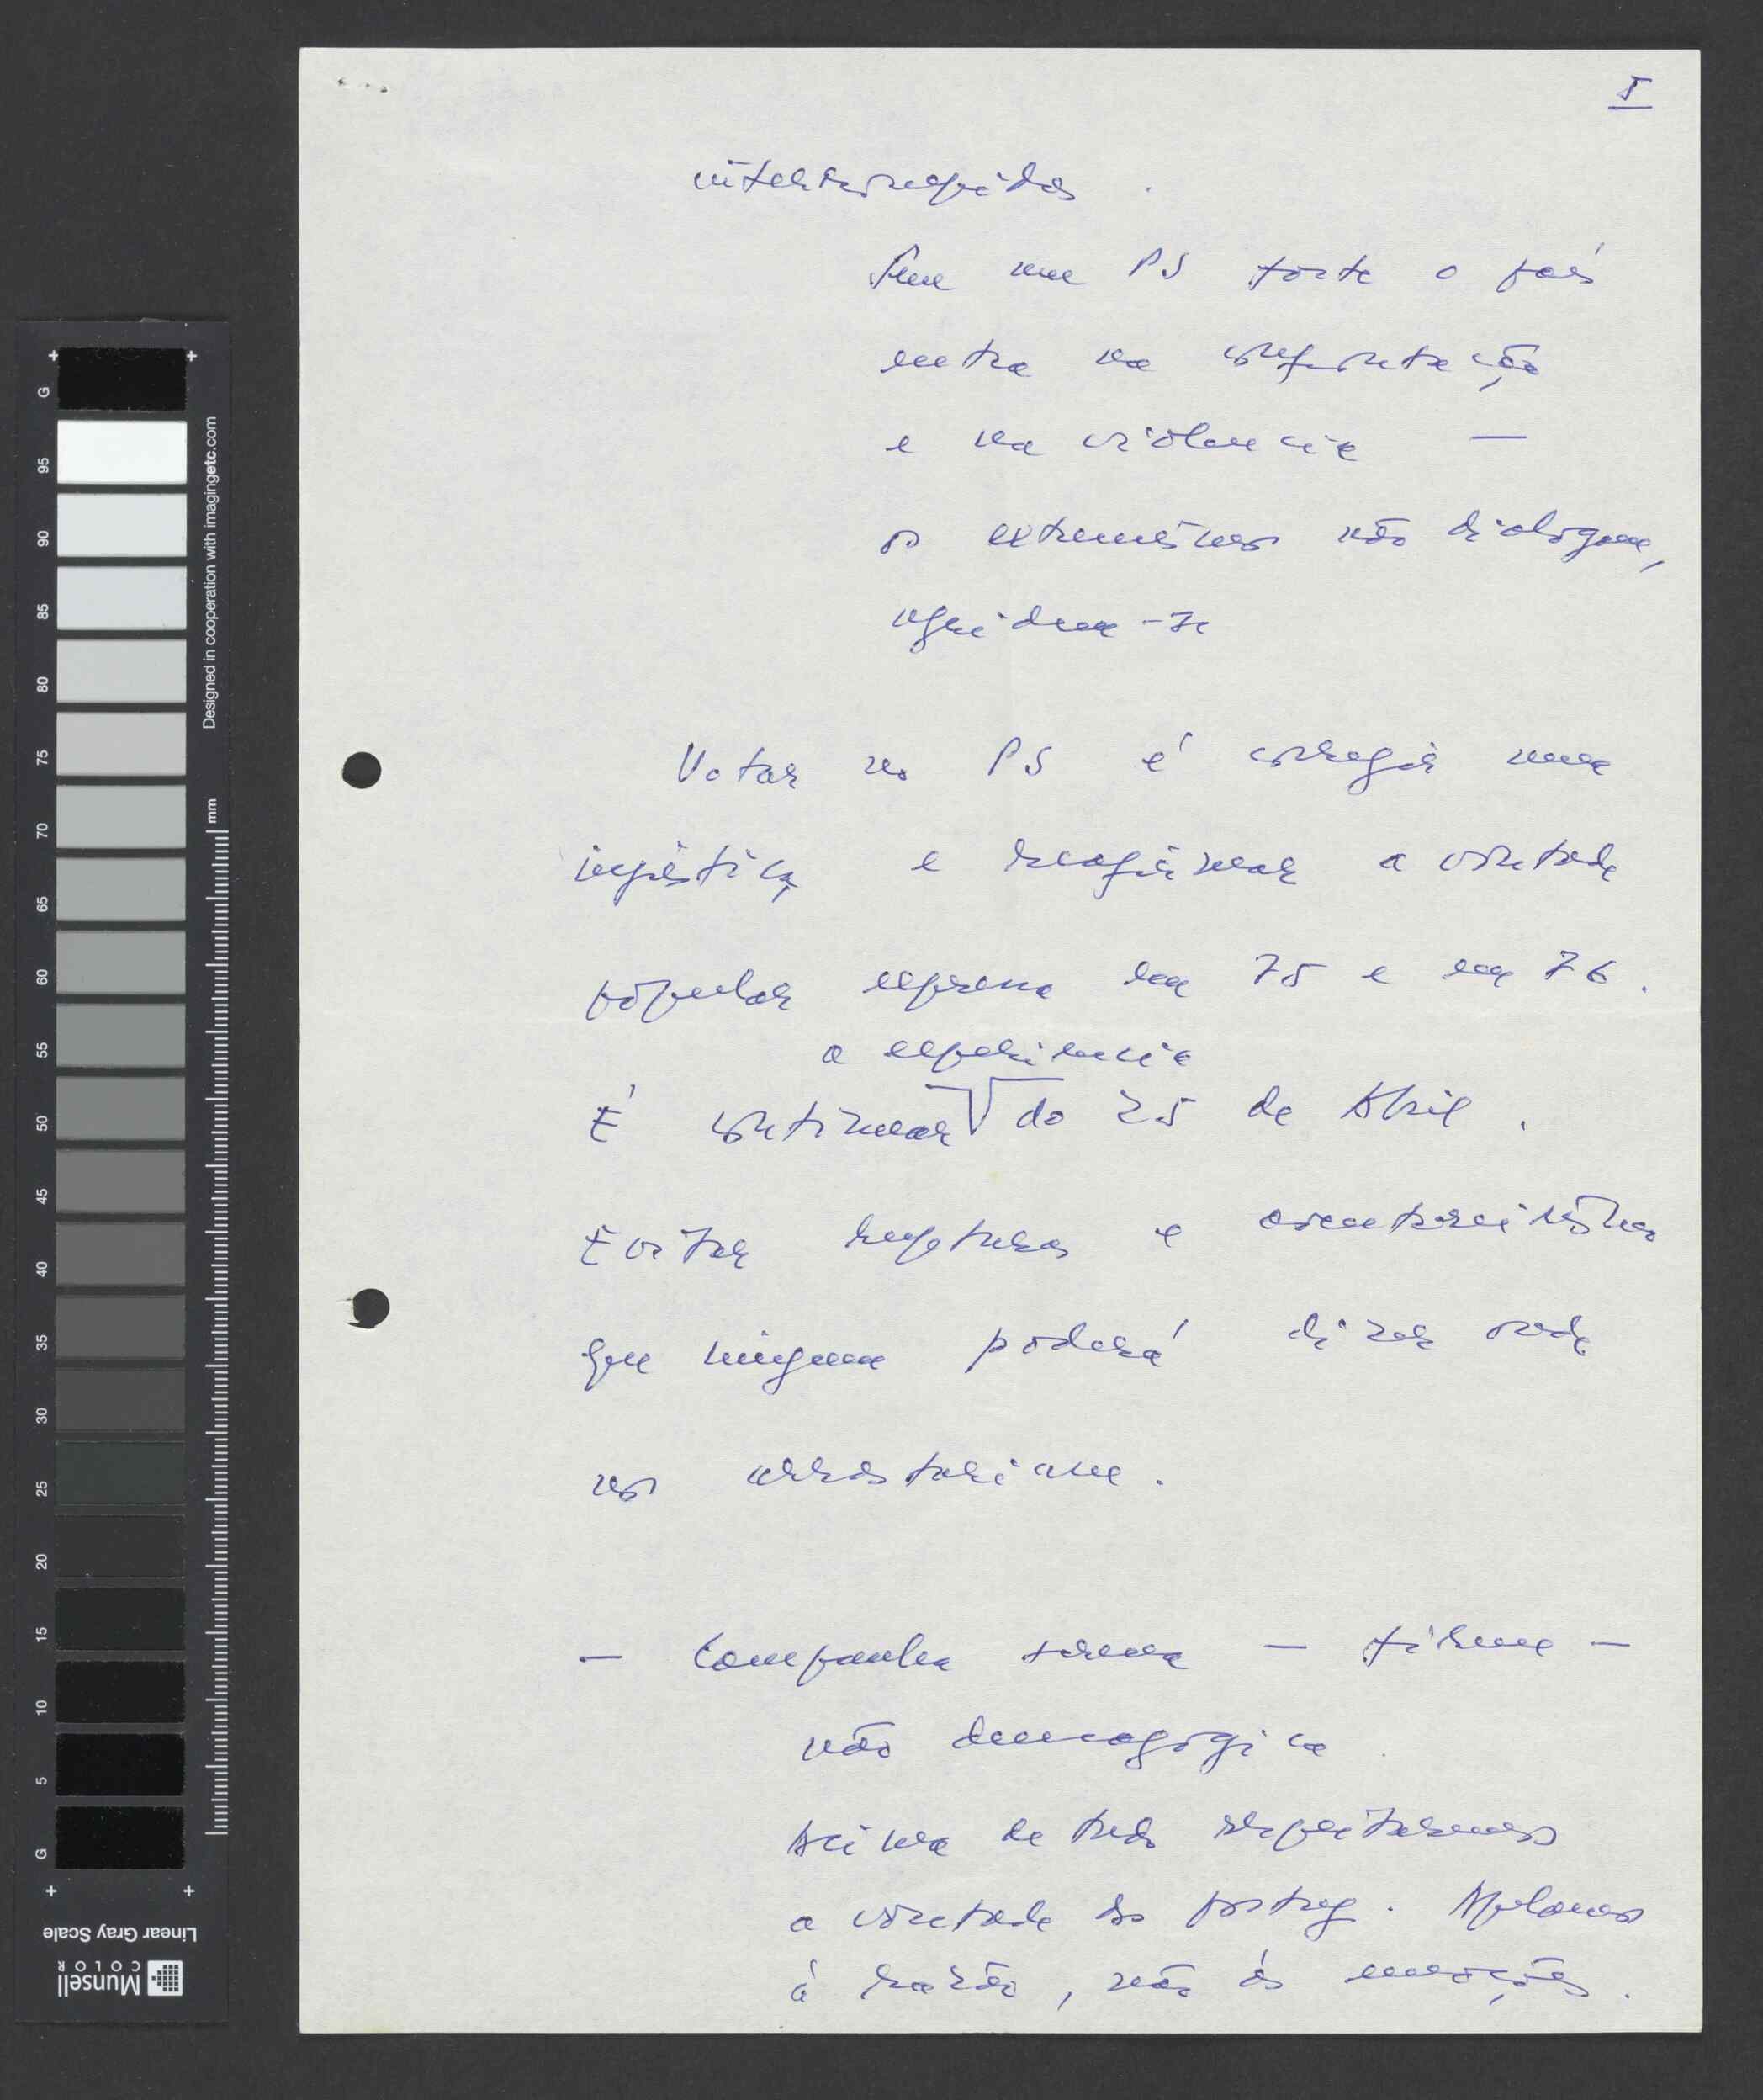 5
interrompidas.
Sem um PS forte o país
entra na confrontação
e na violencia —
os extremismos não dialogam,
agridem-se
Votar no PS é corrigir uma
injustiça e reafirmar a vontade
popular expressa em 75 e em 76.
a experiencia
É continuar do 25 de Abril.
Evitar rupturas e
que ninguem poderá dizer onde
nos arrastariam.
— Campanha serena — firme —
não demagógica
Acima de tudo respeitaremos
a vontade do portug. Apelamos
à razão, não às emoções.
G
95
90
85
80
75
70
65
60
55
50
45
40
35
30
25
20
15
10
5
G
Designed in cooperation with imagingetc.com
mm
Linear Gray Scale
Munsell
COLOR